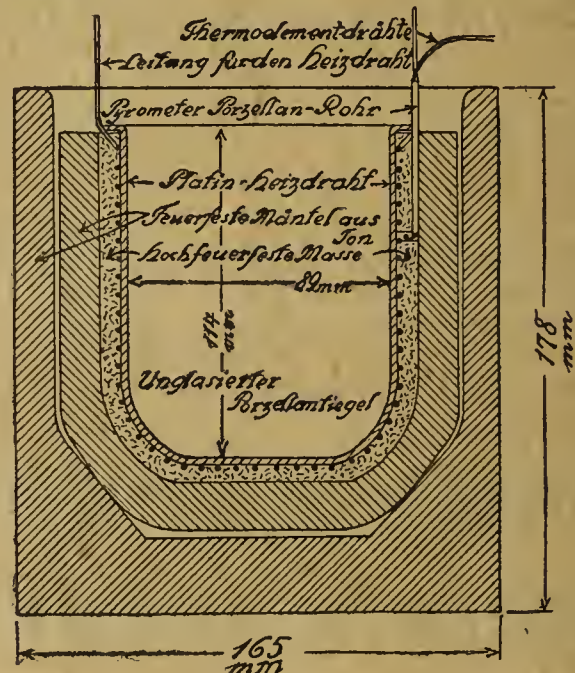 Thermoelementdrähte
Leitung für den Heizdraht
Pyrometer Porzellan-Rohr
Platin-Heizdraht
Feuerfeste Mäntel aus
Ton
Hochfeuerfeste Masse
89 mm
114
mm
Unglasierter
Porzellantiegel
178
mm
165
mm